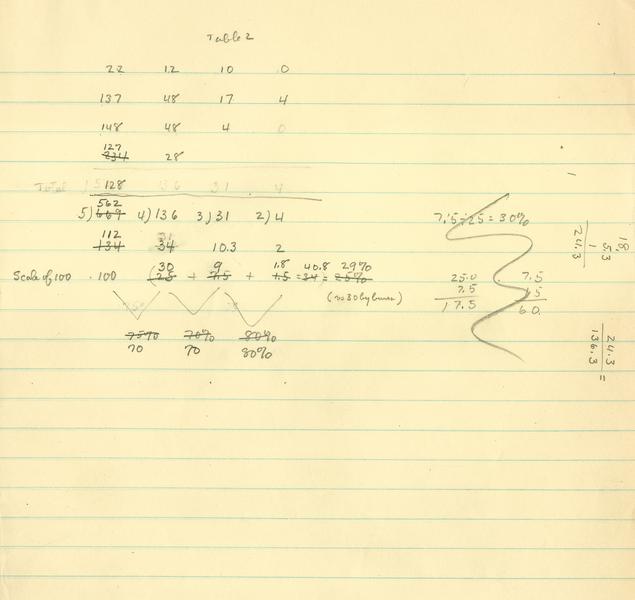 Table 2
22 12 10 0
137 48 17 4
148 48 4 0
127
234 28
Total 128 136 31 4
562
5)669 4)136 3)31 2)4
112
134 34 10.3 2
30 9 1.8 40.8 29%
Scale of 100 . 100 (25 + 7.5 + 1.5 = 34) = 25%
(vs 30 by
75% 70% 80%
70 70 80%
7.5 ÷ 25 = 30%
25.0
7.5
17.5
7.5
1.5
6.0
18
53
1
24.3
24.3
136.3 =